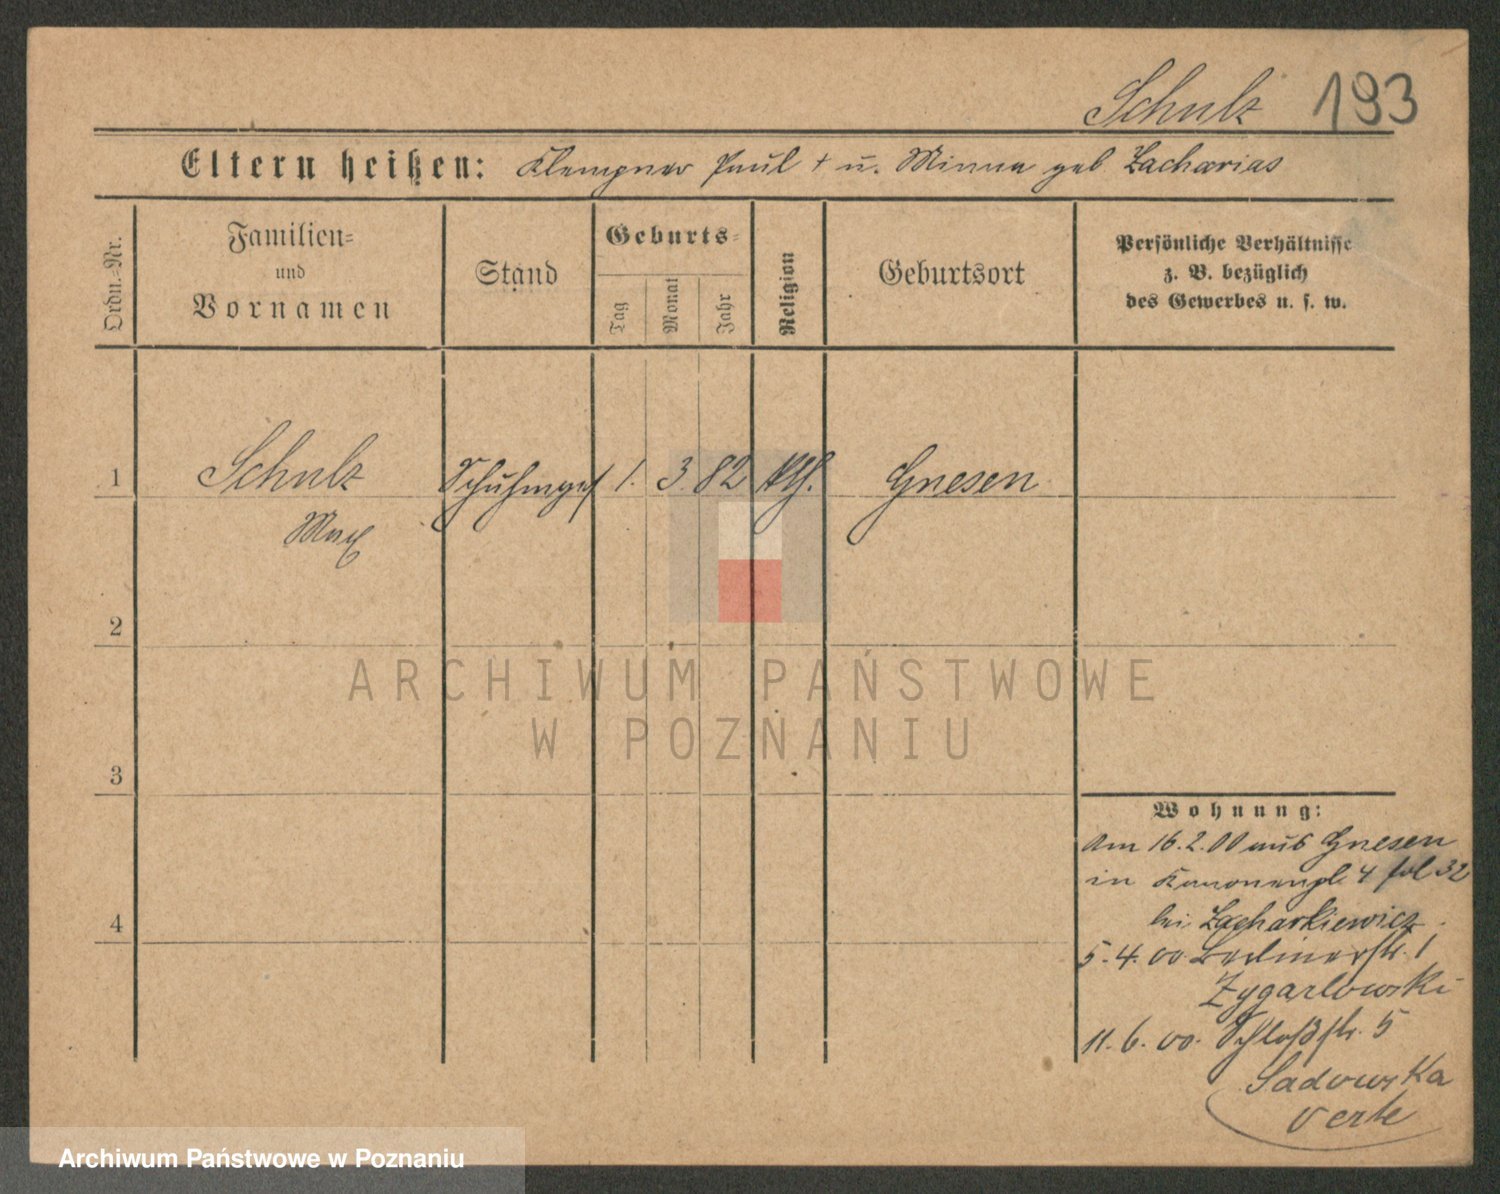 Schulz 193
Eltern heißen: Klempner Paul † u. Minna geb Zacharias
Ordn.=Nr.
Familien=
und
Vornamen
Stand
Geburts=
Tag
Monat
Jahr
Religion
Geburtsort
Persönliche Verhältnisse
z. B. bezüglich
des Gewerbes u. s. w.
1 Schulz Schuhmges 1. 3 82 kth. Gnesen
Max
2
ARCHIWUM PAŃSTWOWE
W POZNANIU
3
Wohnung:
Am 16.2.00 aus Gnesen
in 4 fol 32
4
bei Zacharkiewicz
5.4.00 Berlinerstr. 1
Zygarlowski
11.6.00. Schloßstr. 5
Sadowska
verte
Archiwum Państwowe w Poznaniu